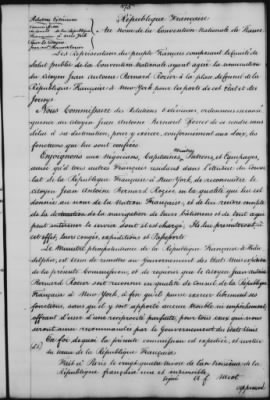 République Française
Au nom de la Convention Nationale de France
Les Représentans du peuple Français composant le Comité de
Salut public de la Convention Nationale ayant agréé la nomination
du Citoyen Jean Antoine Bernard Rozier à la place de Consul de la
République Française à New-York pour les ports de cet Etat et des
Jerseys
Nous Commissaire des Relations Extérieures, ordonnons
au Citoyen Jean Antoine Bernard Rozier de se rendre sans
délai à sa destination, pour y exercer, conformément aux Loix, les
fonctions qui lui sont confiées
Enjoignons aux Négocians, Capitaines, Maitres Patrons, et Equipages,
ainsi qu'à tous autres Français résidant dans l'étendue du Consu-
lat de la République Française à New-York, de reconnaitre le
citoyen Jean Antoine Bernard Rozier en la qualité qui lui est
donnée au nom de la Nation Française, et de lui rendre compte
de la destination de la navigation de leurs bâtimens et de tout ce qui
peut intéresser le service dont il est chargé. Ils lui présenteront, à
cet effet, leurs congés, expéditions et Passeports
Le Ministre plénipotentiaire de la République Française à Phila-
delphie, est tenu de remettre au Gouvernement des Etats-Unis
de la présente Commission, et de requérir que le Citoyen Jean Antoine
Bernard Rozier soit reconnu en qualité de Consul de la République
Française à New-York, à fin qu'il puisse exercer librement ses
fonctions, sans qu'il y soit apporté aucun trouble ni empêchement
offrant d'user d'une réciprocité parfaite, pour tous ceux qui nous
seront ainsi recommandés par le Gouvernement des Etats-Unis
(LS) En foi de quoi la présente commission est expédiée, et scellée
du sceau de la République Française
Fait à Paris le vingt quatre
République française une et indivisible
signé A. f. Miot